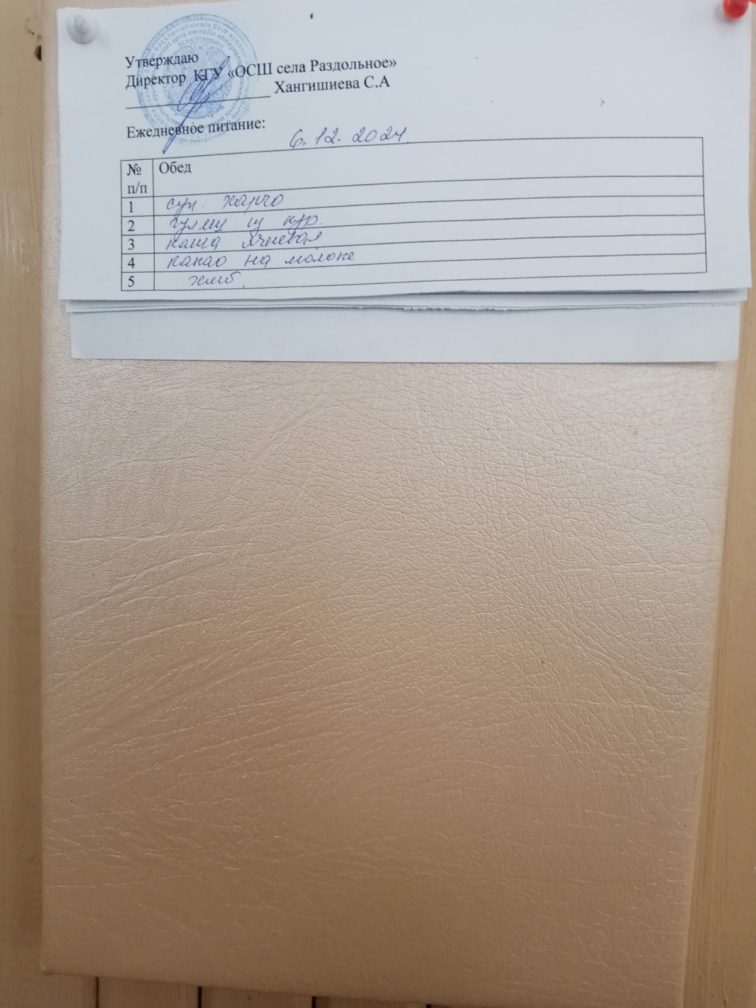 Утверждаю
Директор КГУ «ОСШ села Раздольное»
Хангишиева С.А
Ежедневное питание:
6.12.2024
№ п/п Обед
1 суп. харчо
2 гуляш из кур.
3 каша ячневая
4 какао на молоке
5 хлеб.